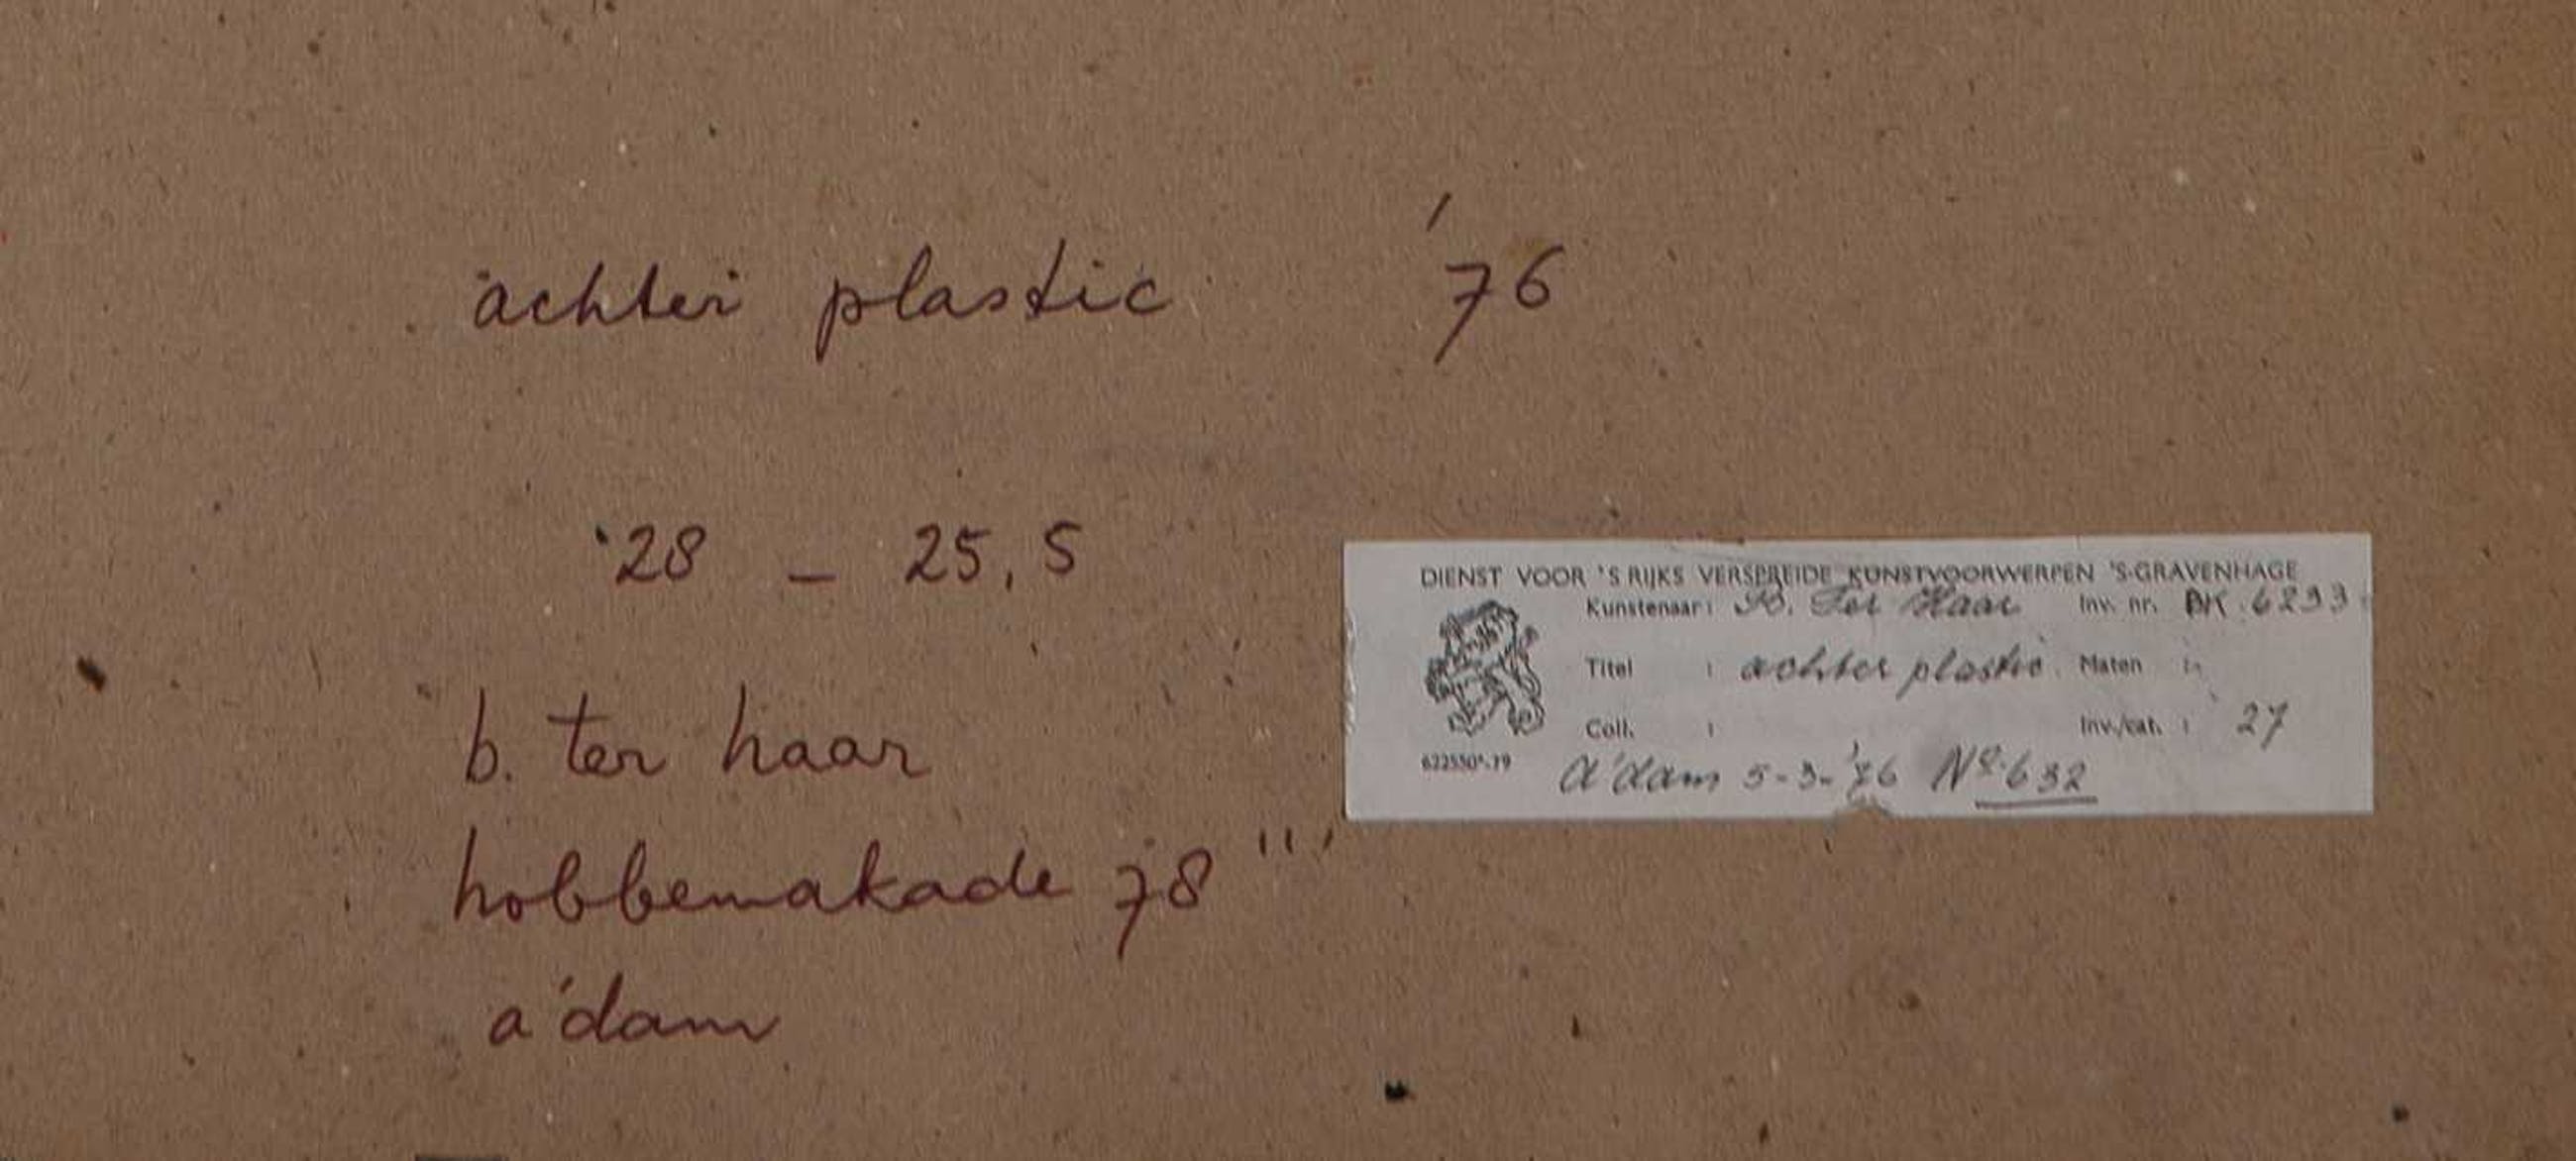 achter plastic '76
28 – 25,5
b. ter haar
hobbemakade 78 '''
a'dam
DIENST VOOR 'S RIJKS VERSPREIDE KUNSTVOORWERPEN 'S-GRAVENHAGE
Kunstenaar : B. Ter Haar Inv. nr. BK 6293
Titel : achter plastic. Maten :
Coll. : Inv./cat. : 27
622550*-19 A'dam 5-3-'76 No. 632